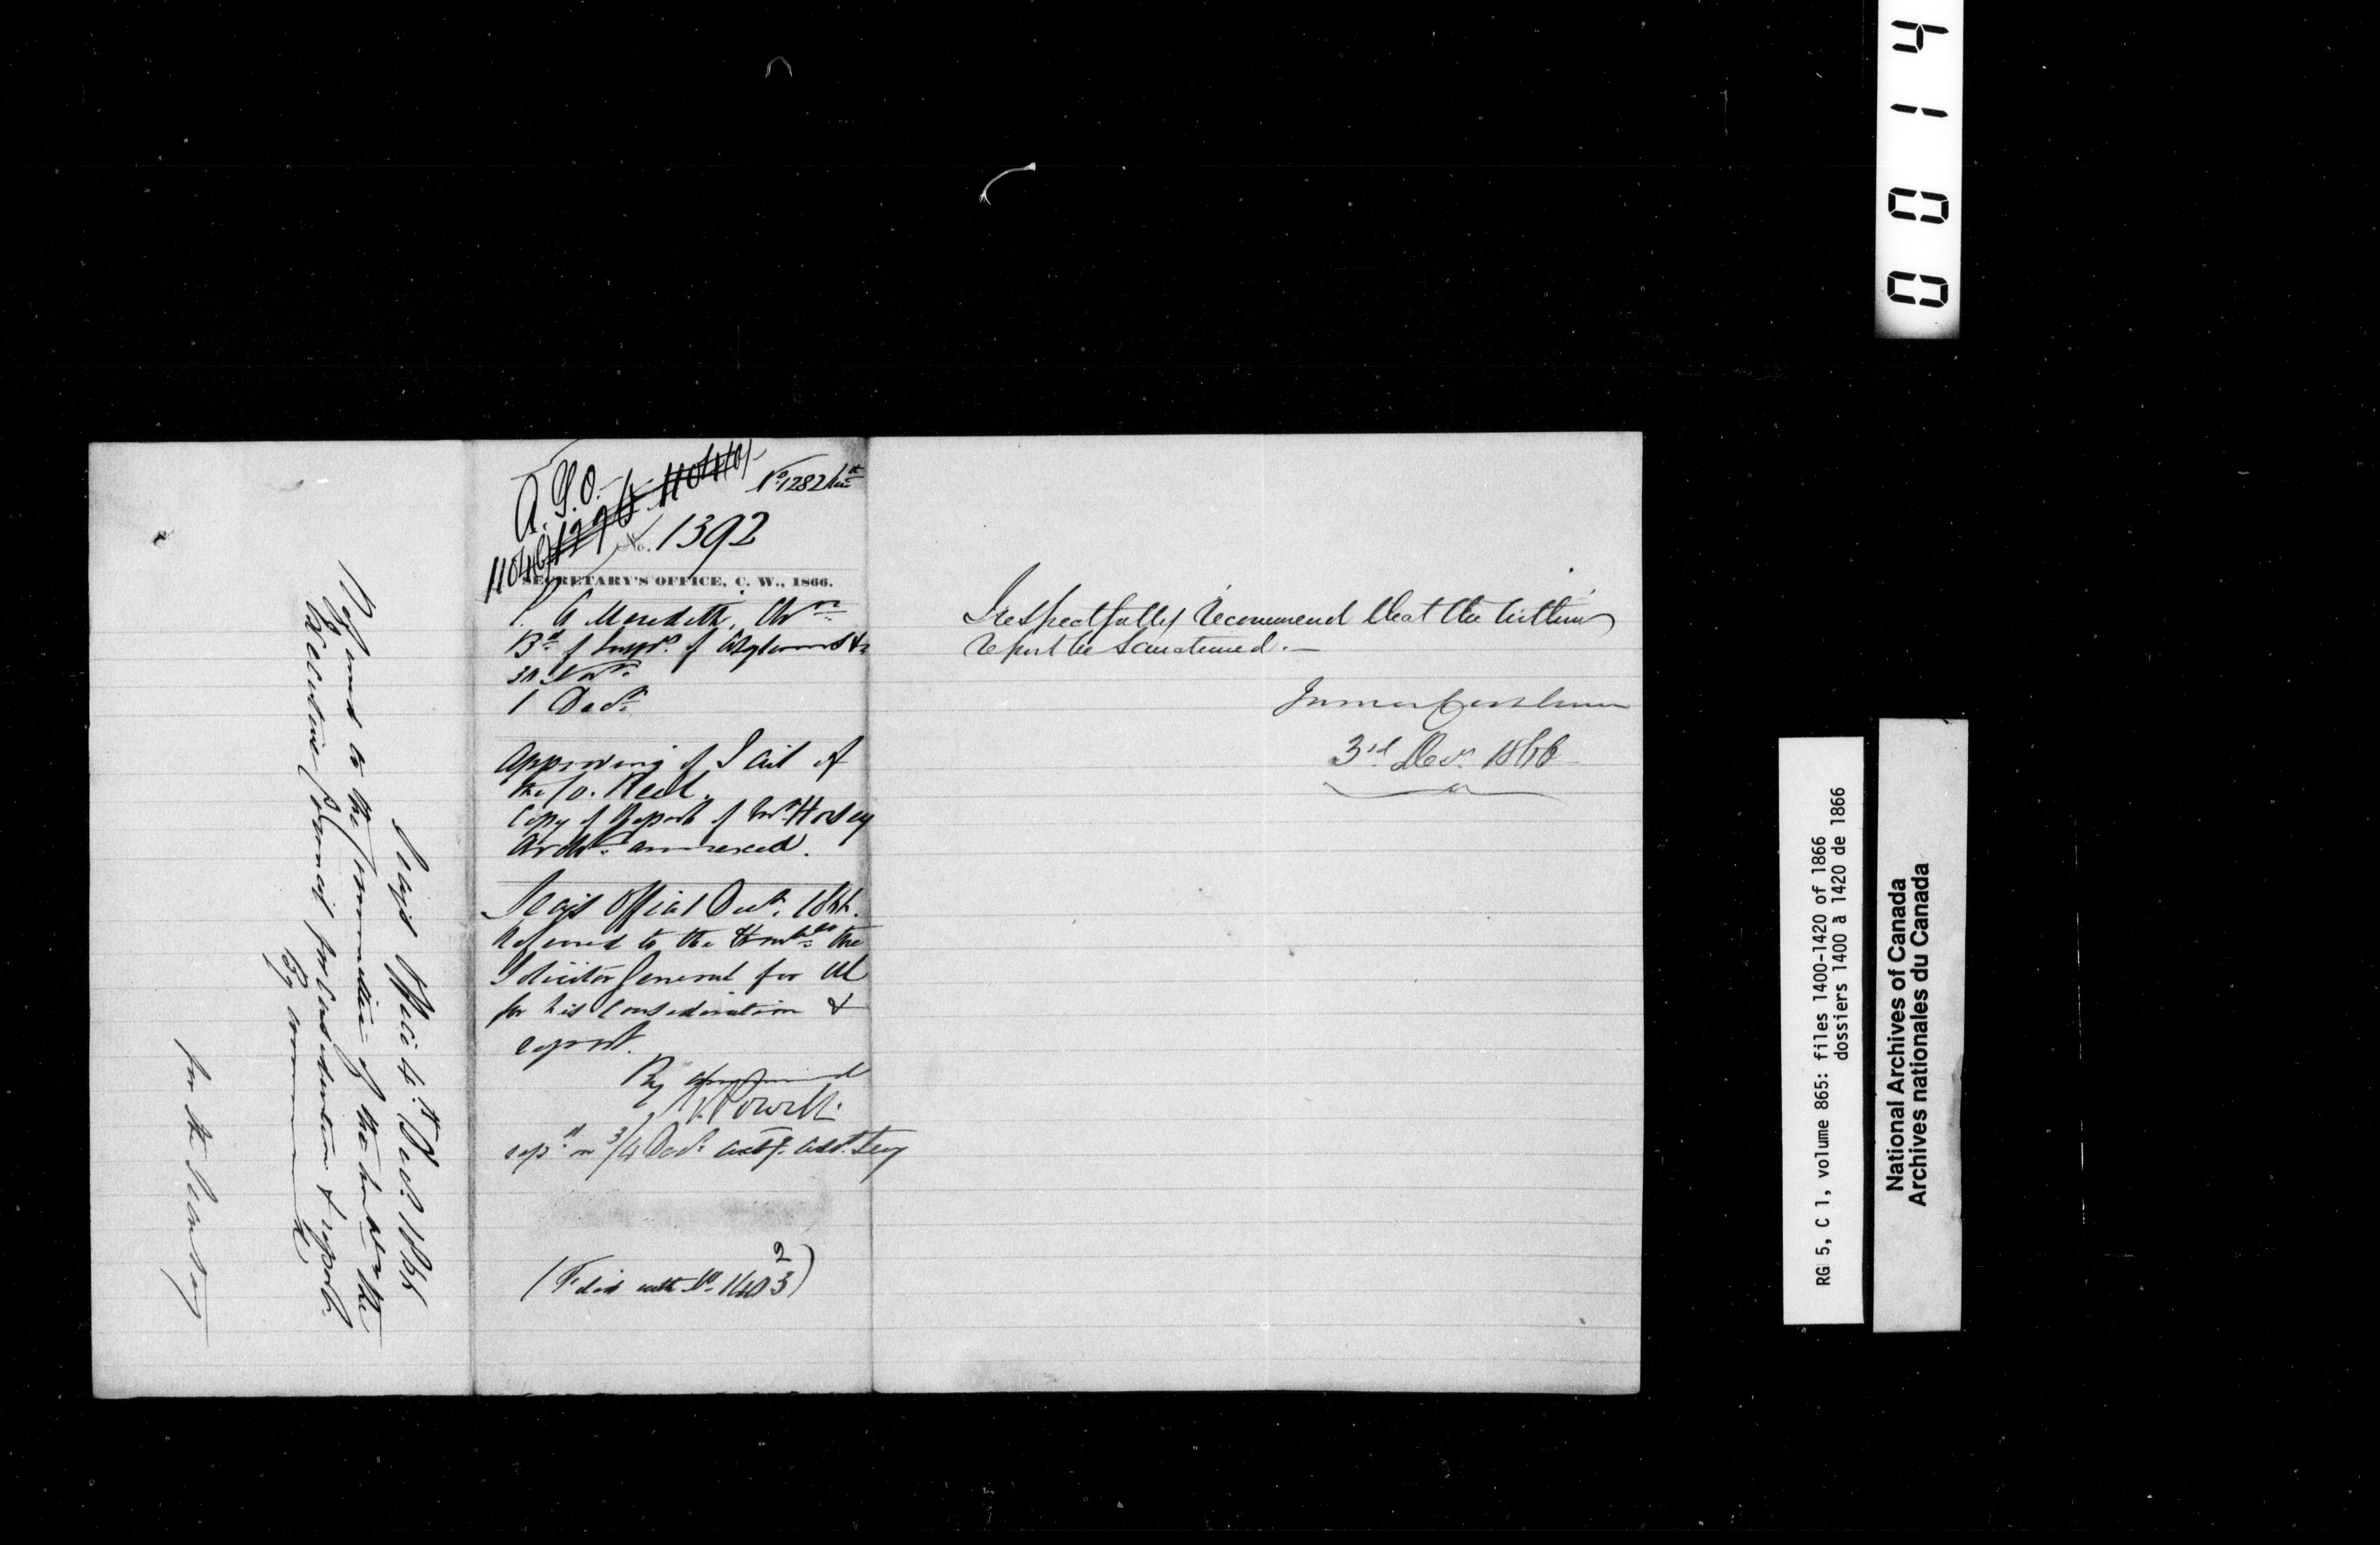 Secy's Office 4th Decr 1866
Referred to the Committee of the Honble the
Executive Council for consideration & report.
By command
for the Secretary
A.G.O.
No 1282
No. 1392
SECRETARY'S OFFICE, C. W., 1866.
E. A. Meredith, Chrn
Bd of Insprs of Asylums &c
30 Novr
1 Decr
Approving of Jail of
the Co. Peel.
Copy of Report of Mr Horsey
Archt annexed.
Secy's Office 1 Decr. 1866.
Referred to the Honble the
Solicitor General for UC
for his consideration &
report.
By command
Powell
repd on 3/4 Decr actg. asst. Secy
(Filed with No. 1403)
2
I respectfully recommend that the within
report be sanctioned.—
James Cockburn
3rd Decr. 1866
0014
RG 5, C 1, volume 865: files 1400-1420 of 1866
dossiers 1400 à 1420 de 1866
National Archives of Canada
Archives nationales du Canada